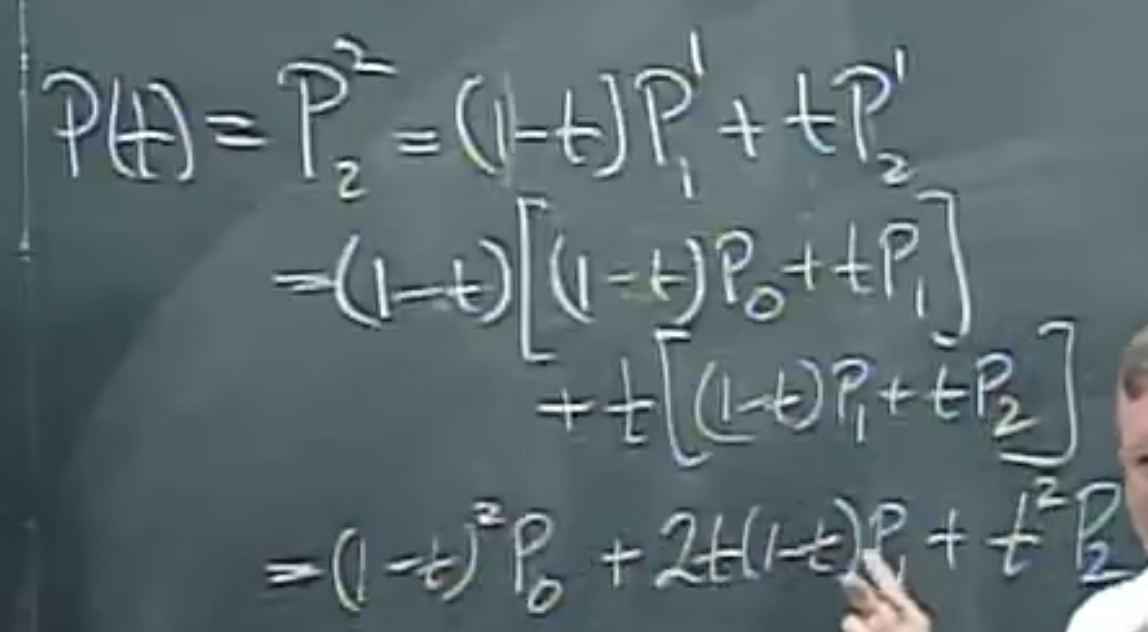 P(t) = P₂² = (1-t)P₁¹ + tP₂¹
=(1-t)[(1-t)P₀+tP₁]
+ t[(1-t)P₁+tP₂]
=(1-t)²P₀ + 2t(1-t)P₁ + t²P₂